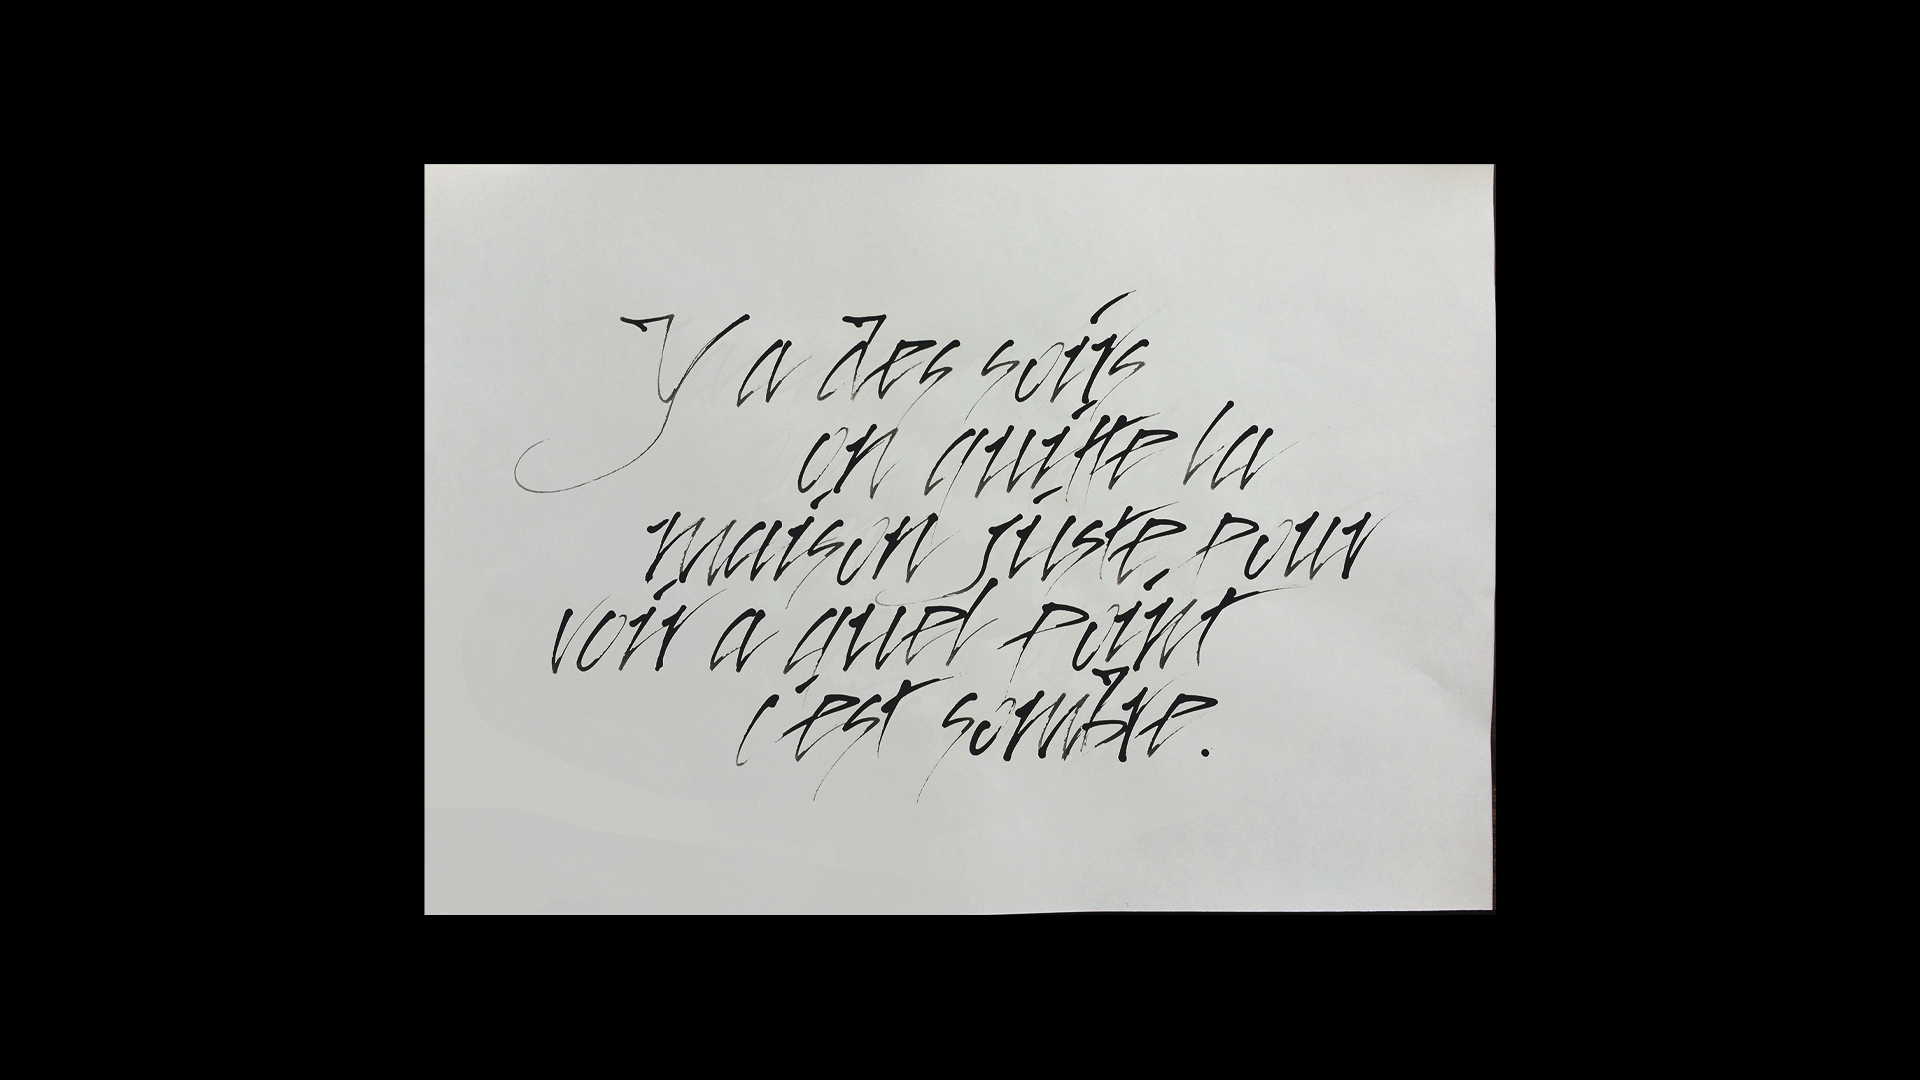 Y a des soirs
on quitte la
maison juste pour
voir a quel point
c'est sombre.